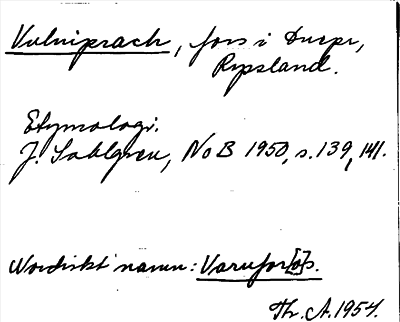 Vulniprach, fors i Dnepr,
Ryssland.
Etymologi.
J. Sahlgren, NoB 1950, s. 139, 141.
Nordiskt namn: Varufor[o]s.
Th. A. 1954.